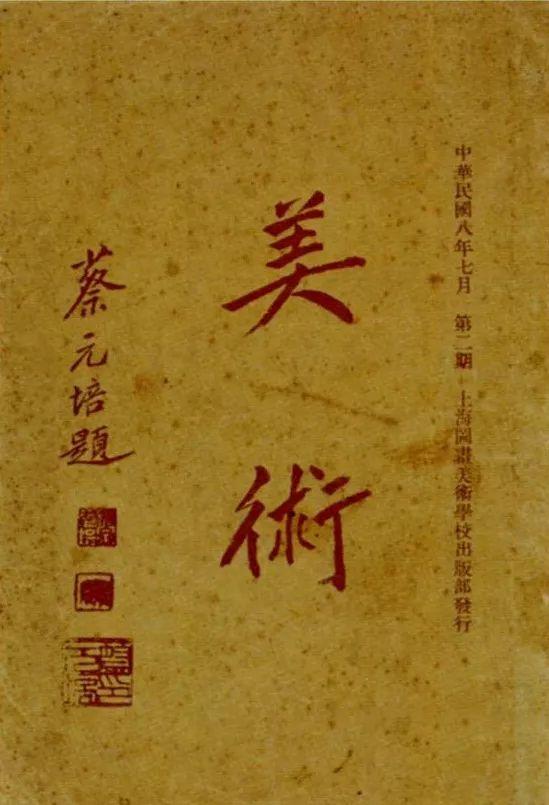 中華民國八年七月　第二期　上海圖畫美術學校出版部發行
美術
蔡元培題